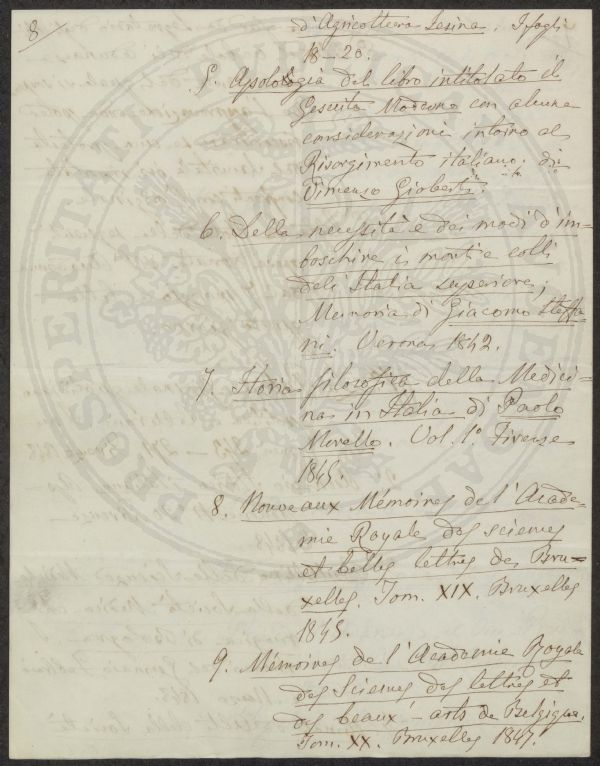 8
d'Agricoltura Lesina. I fogli
18-20.
5. Apologia del libro intitolato il
Gesuita Moderno con alcune
considerazioni intorno al
Risorgimento italiano; di
Vincenzo Gioberti.
6. Della necessità e dei modi d'im-
boschire i monti e colli
dell'Italia superiore;
Memoria di Giacomo Steffa-
ni. Verona 1842.
7. Storia filosofica della Medici-
na in Italia di Paolo
Morello. Vol. 1º Firenze
1845.
8. Nouveaux Mémoires de l'Acade-
mie Royale des sciences
et belles lettres de Bru-
xelles. Tom. XIX. Bruxelles
1845.
9. Mémoires de l'Academie Royale
des Sciences des lettres et
des beaux-arts de Belgique.
Tom. XX. Bruxelles 1847.
PROSPERITATI